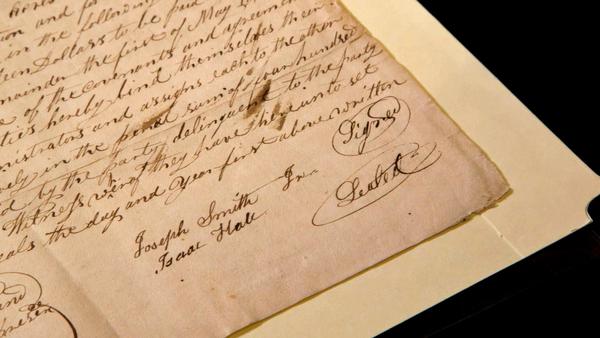 on and for
in the following
een Dollars to be paid
emainder the first of May
e of the covenants and agreement
ties hereby bind themselves their
nistrators and assigns each to the other
vely in the penal sum of four hundred
d by the party delinquent to the party
Witness where they have hereunto set
eals the day and Year first above written
Signed
Joseph Smith Jnr
Sealed
Isaac Hale